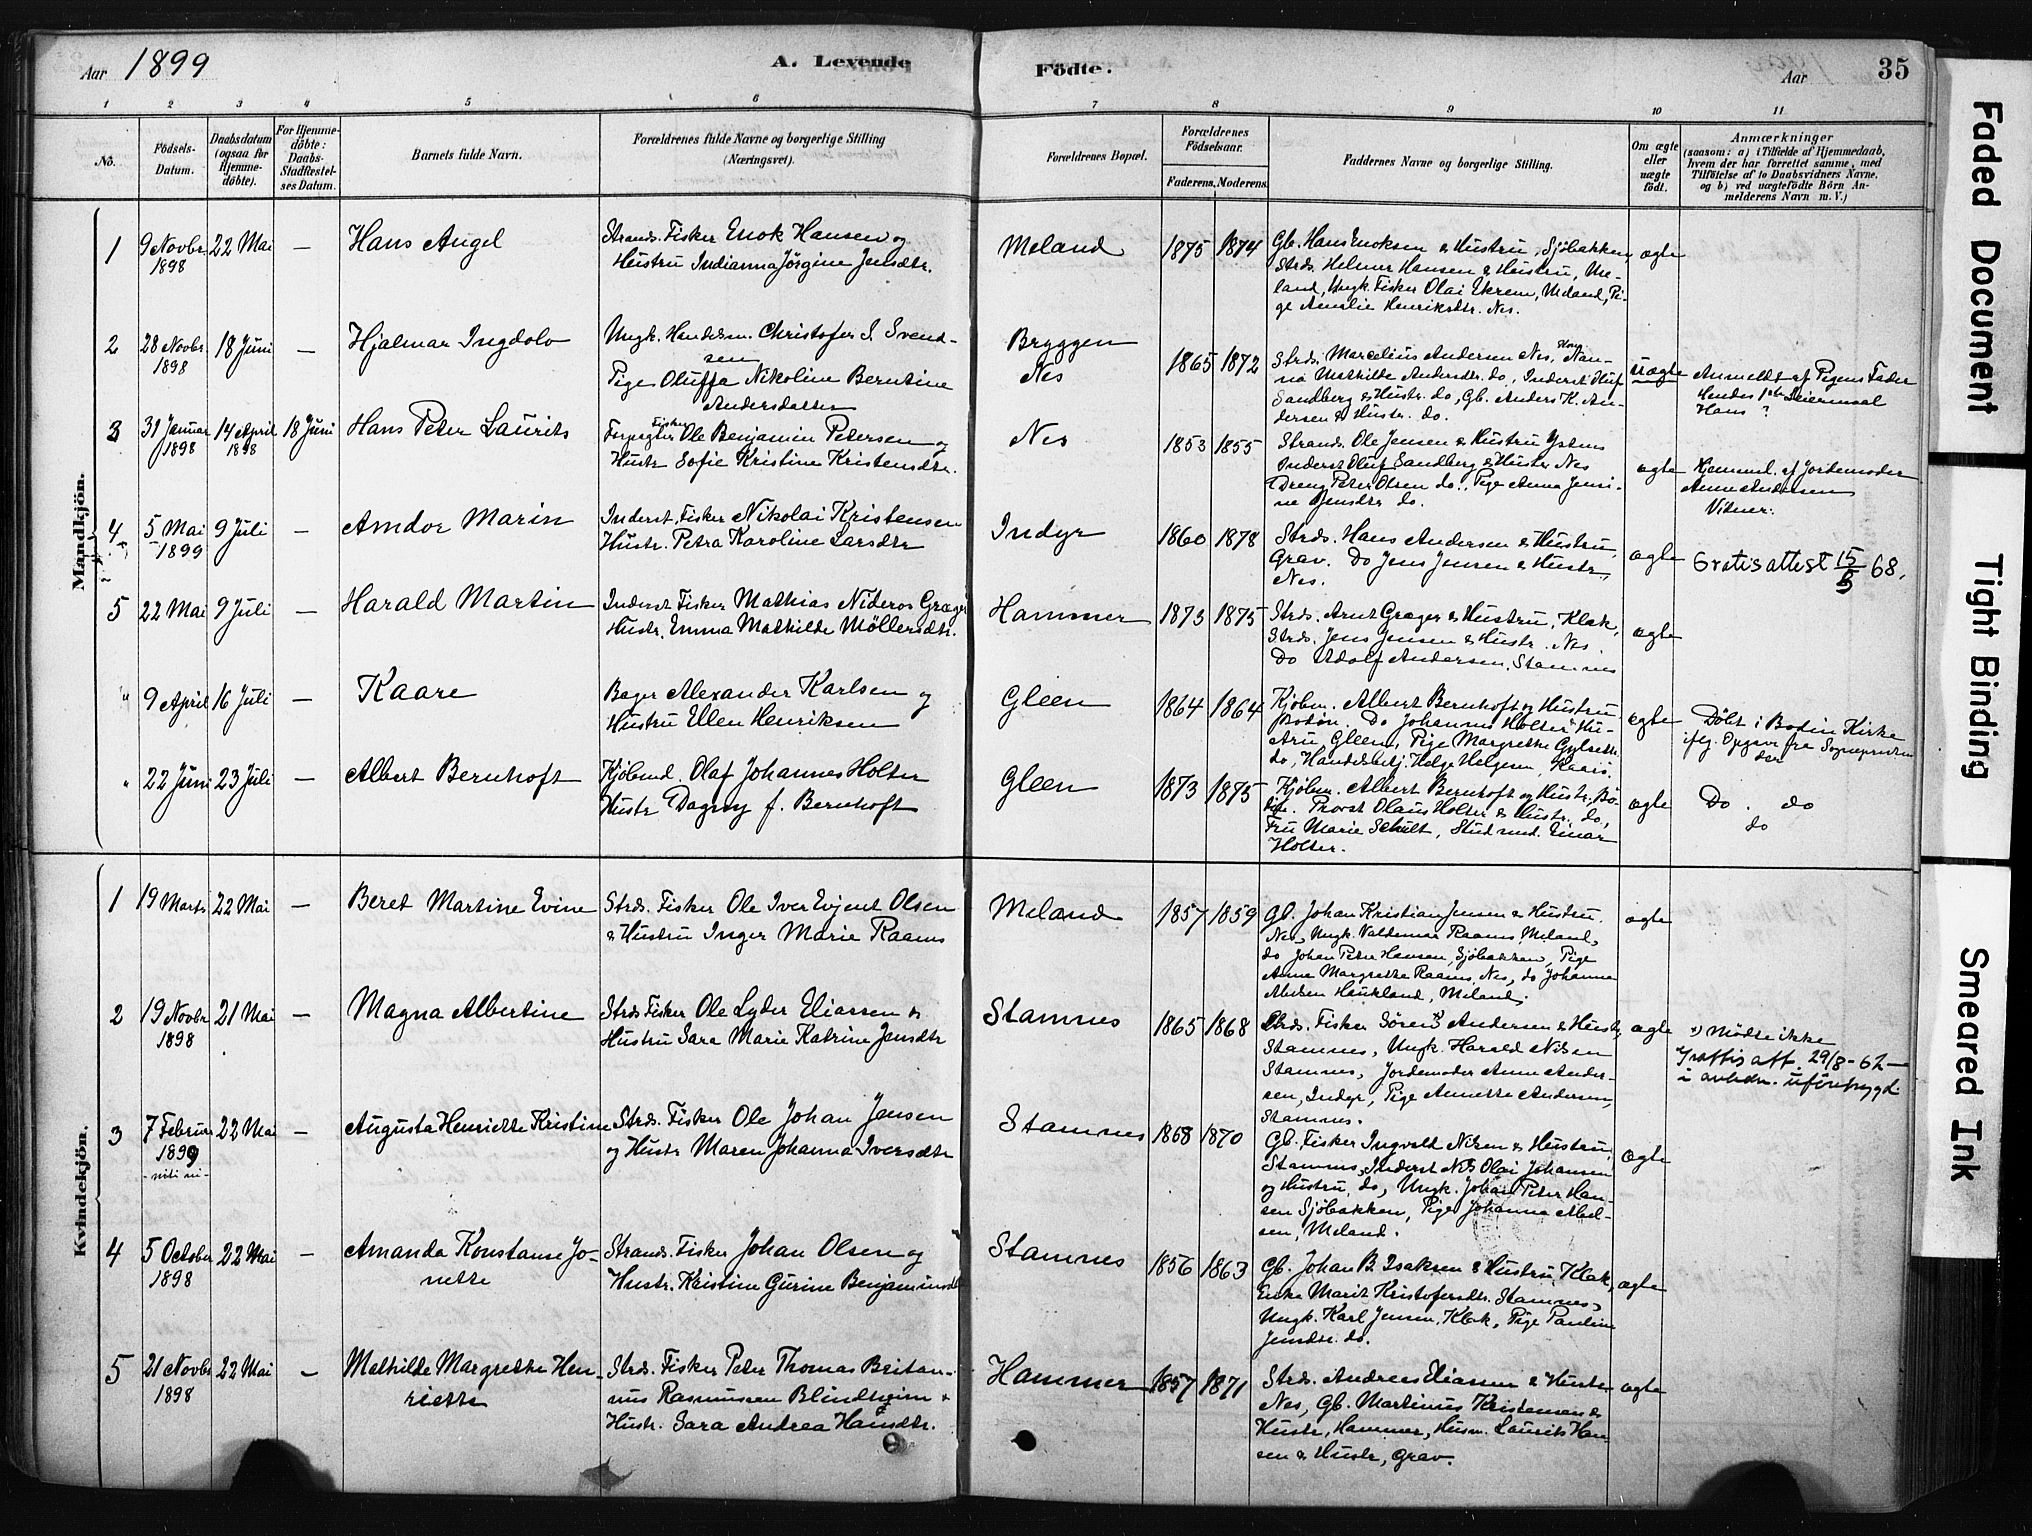 Aar 1899
A. Levende
Födte.
Aar
35
1 2 3 4 5 6 7 8 9 10 11
No.
Födsels-Datum.
Daabsdatum (ogsaa for Hjemme-döbte).
For Hjemme-döbte: Daabs-Stadfæstel-ses Datum.
Barnets fulde Navn.
Forældrenes fulde Navne og borgerlige Stilling (Næringsvei).
Forældrenes Bopæl.
Forældrenes Födselsaar.
Faderens. Moderens.
Faddernes Navne og borgerlige Stilling.
Om ægte eller uægte födt.
Anmærkninger
(saasom: a) i Tilfælde af Hjemmedaab, hvem der har forrettet samme, med Tilföielse af to Daabsvidners Navne, og b) ved uægtefödte Börn An-melderens Navn m. V.)
Mandkjön.
1 9 Novbr. 1898 22 Mai — Hans Angel
Strands. Fisker Enok Hansen og
Hustru Indianna Jörgine Jensdtr.
Meland 1875 1874
Gb. Hans Enoksen & Hustru, Sjöbakken,
Strds. Helmer Hansen & Hustru, Me-
land, Ungk. Fisker Olai Ekrem, Meland, Pi-
ge Amalie Henriksdtr. Nes.
ægte
2 28 Novbr. 1898 18 Juni — Hjalmar Ingdolv
Ungk. Handelsm. Christofer J. Svend-
sen
Pige Oluffa Nikoline Berntine
Andersdatter
Bryggen
Nes
1865 1872
Strds. Marcelius Andersen Nes, Nan-
na Mathilde Andersdtr. do, Inderst Oluf
Sandberg & Hustr. do, Gb. Anders K. An-
dersen & Hustr. do.
uægte
Anmeldt af Pigens Fader
Hendes 1ste Leiermaal
Hans ?
3 31 Januar 1898 14 April 1898 18 Juni Hans Peter Laurits
Fisker
Forpagter Ole Benjamin Petersen og
Hustr Sofie Kristine Kristensdtr.
Nes 1853 1855
Strands. Ole Jensen & Hustru
Inderst Oluf Sandberg & Hustr. Nes
Dreng Peter Olsen do., Pige Anna Jensi-
ne Jensdtr do.
ægte
Hjemmd. af Jordemoder
Anne Andersen
Vidner:
4 5 Mai 1899 9 Juli — Amdor Marin
Inderst, Fisker Nikolai Kristensen
Hustr. Petra Karoline Larsdtr
Indyr 1860 1878
Strds. Hans Andersen & Hustru,
Grav. Do Jens Jensen & Hustr,
Nes.
ægte
Gratisattest 15/9 68.
5 22 Mai 9 Juli — Harald Martin
Inderst Fisker Mathias Nideros Græger
Hustr. Emma Mathilde Möllersdtr.
Hammer 1873 1875
Strds. Arnt Græger & Hustru, Klæk,
Strds. Jens Jensen & Hustr. Nes.
Do Adolf Andersen, Stamnes
ægte
" 9 April 16 Juli — Kaare
Bager Alexander Karlsen og
Hustru Ellen Henriksen
Gleen 1864 1864
Kjöbm. Albert Bernhoft og Hustru
Bodön. Do Johannes Holter & Hu-
stru Gleen, Pige Margrethe
do, Handelsbetj. Helge Helgesen,
ægte
Döbt i Bodin Kirke
iflg. Opgave fra Sognepræsten
der
" 22 Juni 23 Juli — Albert Bernhoft
Kjöbmd. Olaf Johannes Holter
Hustr Dagny f. Bernhoft
Gleen 1873 1875
Kjöbm. Albert Bernhoft og Hustr. Bo-
Provst Olaus Holter & Hustr. do,
Fru Marie Schult, Stud med. Einar
Holter.
ægte
Do. do
do
Kvindekjön.
1 19 Marts 22 Mai — Beret Martine Evine
Strds. Fisker Ole Iver Evjent Olsen
& Hustru Inger Marie Raanes
Meland 1857 1859
Gb. Johan Kristian Jensen & Hustru.
Nes, Ungk. Valdemar Raanes Meland,
do Johan Peter Hansen, Sjöbakken, Pige
Anne Margrethe Raanes, Nes, do Johanna
Abelsen Haukland, Meland.
ægte
2 19 Novbr 1898 21 Mai — Magna Albertine
Strds Fisker Ole Lyder Eliassen &
Hustru Sara Marie Katrine Jensdtr
Stamnes 1865 1868
Strds. Fisker Sören Andersen & Hustr,
Stamnes, Ungk. Harald Nilsen
Stamnes, Jordemoder Anne Ander-
sen, Indyr, Pige Annette Andersen,
Stamnes.
ægte
x) Mödte ikke
Grattis att. 29/8-62 —
i anledn. uföretrygd.
3 7 Februar 1899 niti ni 22 Mai — Augusta Henriette Kristine
Strds. Fisker Ole Johan Jensen
og Hustr Maren Johanna Iversdtr
Stamnes 1868 1870
Gb. Fisker Ingvald Nilsen & Hustru,
Stamnes, Inderst Nils Olai Johansen
og Hustru, do, Ungk. Johan Peter Han-
sen Sjöbakken, Pige Johanna Abel-
sen, Meland.
ægte
4 5 October 1898 22 Mai — Amanda Konstanse Jo-
nette
Strands. Fisker Johan Olsen og
Hustr. Kristine Gurine Benjaminsdtr
Stamnes 1856 1863
Gb. Johan B. Isaksen & Hustru, Klæk,
Enke Marit Kristofersdtr. Stamnes,
Ungk. Karl Jensen, Klæk, Pige Pauline
Jensdtr. do.
ægte
5 21 Novbr 1898 22 Mai — Mathilde Margrethe Hen-
riette
Strds. Fisker Peter Thomas Britan-
nus Rasmussen Blindheim &
Hustr. Sara Andrea Hansdtr.
Hammer 1857 1871
Strds. Andreas Eliassen & Hustr
Nes, Gb. Martinus Kristensen &
Hustr, Hammer, Husm. Laurits Han-
sen & Hustr, Grav.
ægte
Faded Document
Tight Binding
Smeared Ink